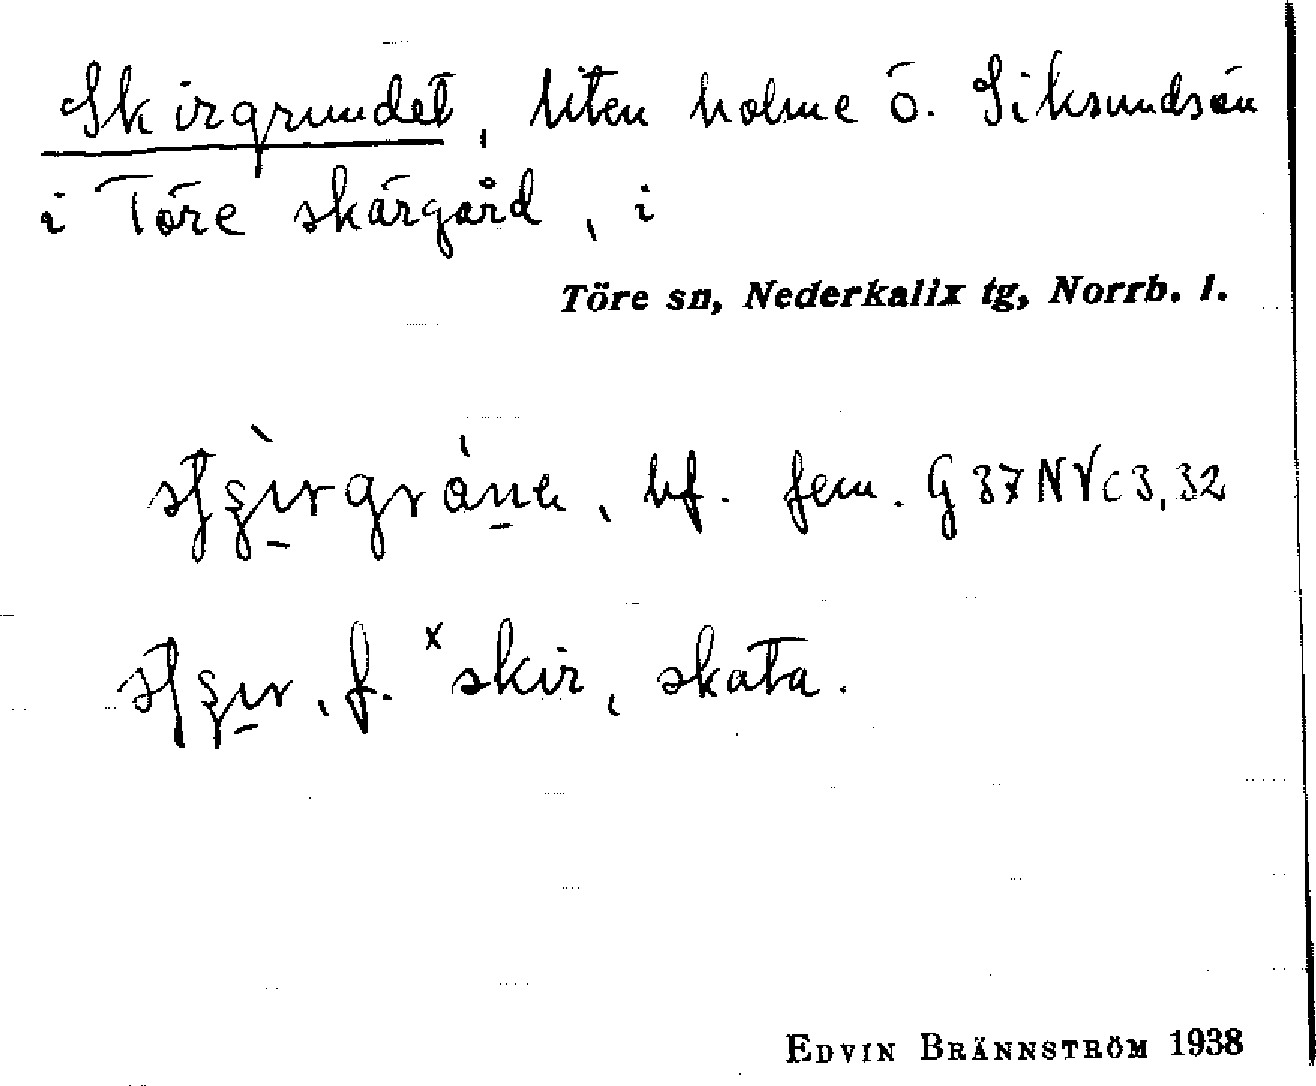 Skirgrundet, liten holme ö. Siksundsön
i Töre skärgård, i
Töre sn, Nederkalix tg, Norrb. l.
bf. fem. G 37 NV c 3, 32
f. ˣskir, skata.
EDVIN BRÄNNSTRÖM 1938